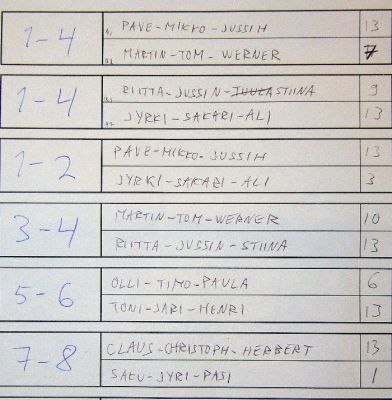 1-4
A1 PAVE-MIKKO-JUSSIH 13
A2 MARTIN-TOM-WERNER 7
1-4
B1 RIITTA-JUSSIN-JUULASTIINA 9
A2 JYRKI-SAKARI-ALI 13
1-2
PAVE-MIKKO-JUSSIH 13
JYRKI-SAKARI-ALI 3
3-4
MARTIN-TOM-WERNER 10
RIITTA-JUSSIN-STIINA 13
5-6
OLLI-TIMO-PAULA 6
TONI-JARI-HENRI 13
7-8
CLAUS-CHRISTOPH-HERBERT 13
SAKU-JYRI-PASI 1